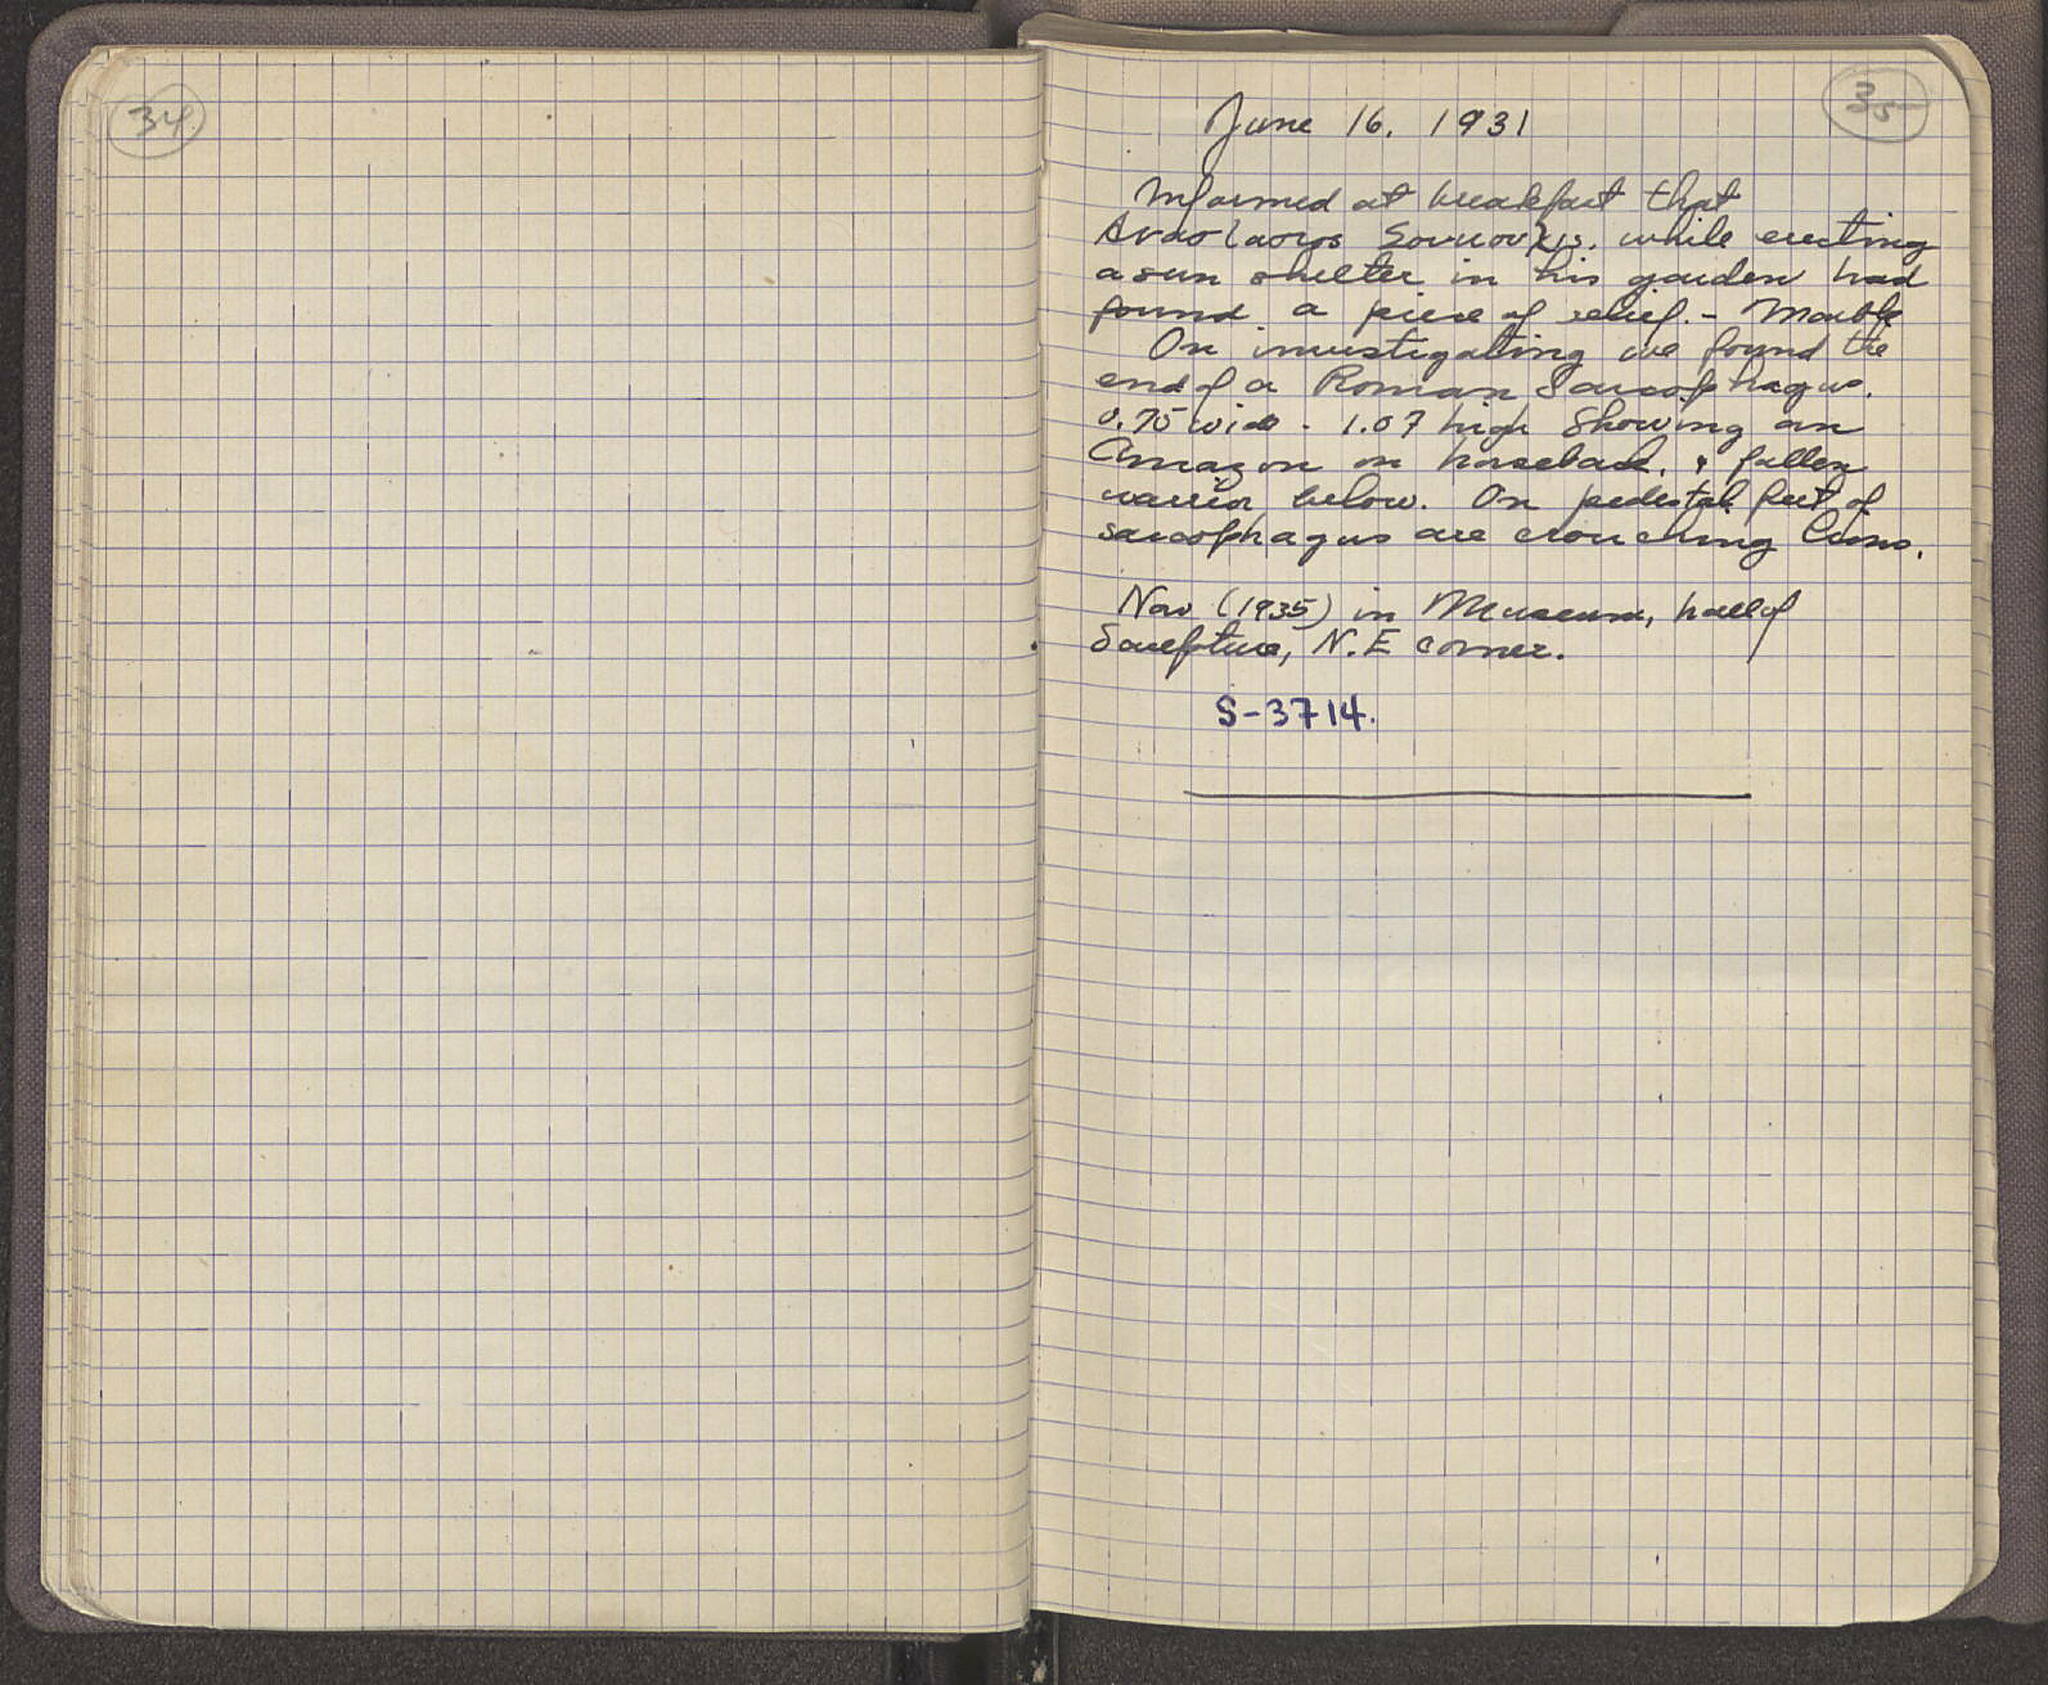 34
35
June 16, 1931
Informed at breakfast that
while erecting
a sun shelter in his garden had
found a piece of relief. - Marble
On investigating we found the
end of a Roman Sarcophagus.
0.75 wide - 1.07 high showing an
Amazon on horseback. & fallen
warrior below. On pedestal feet of
sarcophagus are crouching lions.
Now (1935) in Museum, hall of
Sculpture, N.E corner.
S-3714.